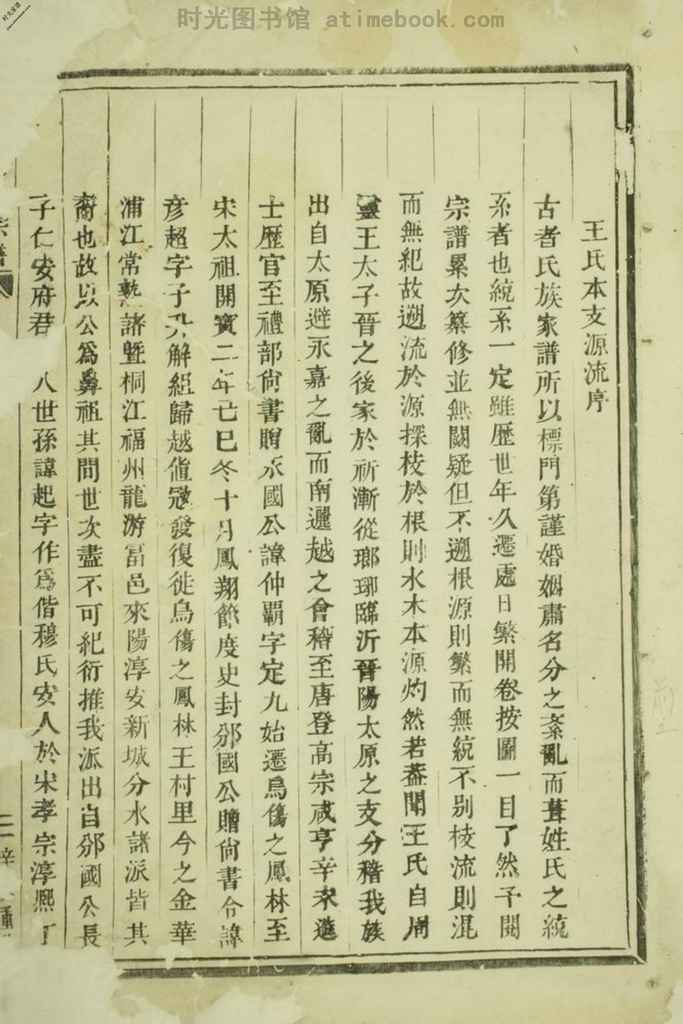 时光图书馆 atimebook.com
王氏本支源流序
古者氏族家譜所以標門第謹婚姻肅名分之紊亂而葺姓氏之統
系者也統系一定雖歷世年久遷處日繁開卷按圖一目了然予閱
宗譜累次纂修並無闕疑但不遡根源則繁而無統不别枝流則混
而無紀故遡流於源探枝於根則水木本源灼然若蓋聞王氏自周
靈王太子晉之後家於祈漸從瑯琊臨沂晉陽太原之支分稽我族
出自太原避永嘉之亂而南遷越之會稽至唐登高宗咸亨辛未進
士歷官至禮部尙書贈永國公諱仲霸字定九始遷烏傷之鳳林至
宋太祖開寶二年己巳冬十月鳳翔節度史封邠國公贈尙書令諱
彦超字子升解組歸越値冦發復徙烏傷之鳳林王村里今之金華
浦江常熟諸暨桐江福州龍游富邑來陽淳安新城分水諸派皆其
裔也故以公爲鼻祖其間世次盡不可紀衍推我派出自邠國公長
子仁安府君 八世孫諱起字作爲偕穆氏安人於宋孝宗淳熙丁
宗譜